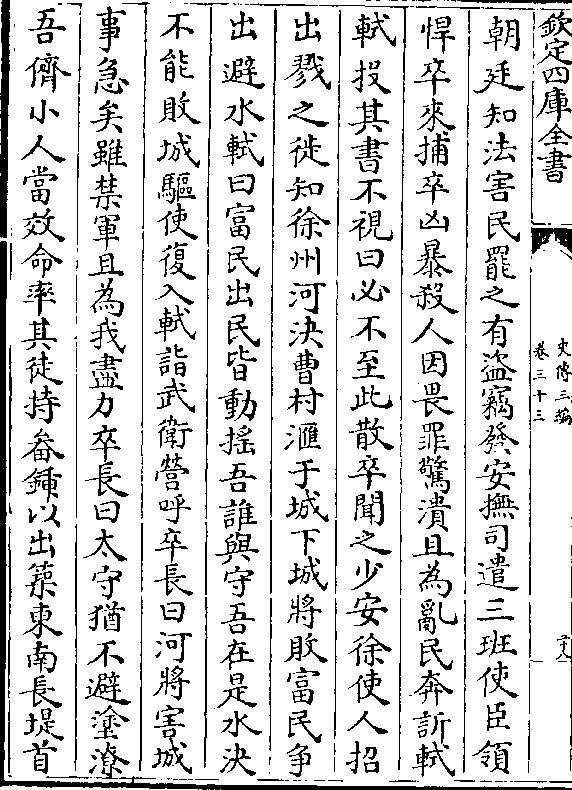 欽定四庫全書
史傳三編
卷三十三
朝廷知法害民罷之有盜竊發安撫司遣三班使臣領
悍卒來捕卒凶暴殺人因畏罪驚潰且為亂民奔訴軾
軾投其書不視曰必不至此散卒聞之少安徐使人招
出戮之徙知徐州河決曹村滙于城下城將敗富民爭
出避水軾曰富民出民皆動搖吾誰與守吾在是水決
不能敗城驅使復入軾詣武衛營呼卒長曰河將害城
事急矣雖禁軍且為我盡力卒長曰太守猶不避塗潦
吾儕小人當效命率其徒持畚鍤以出築東南長堤首